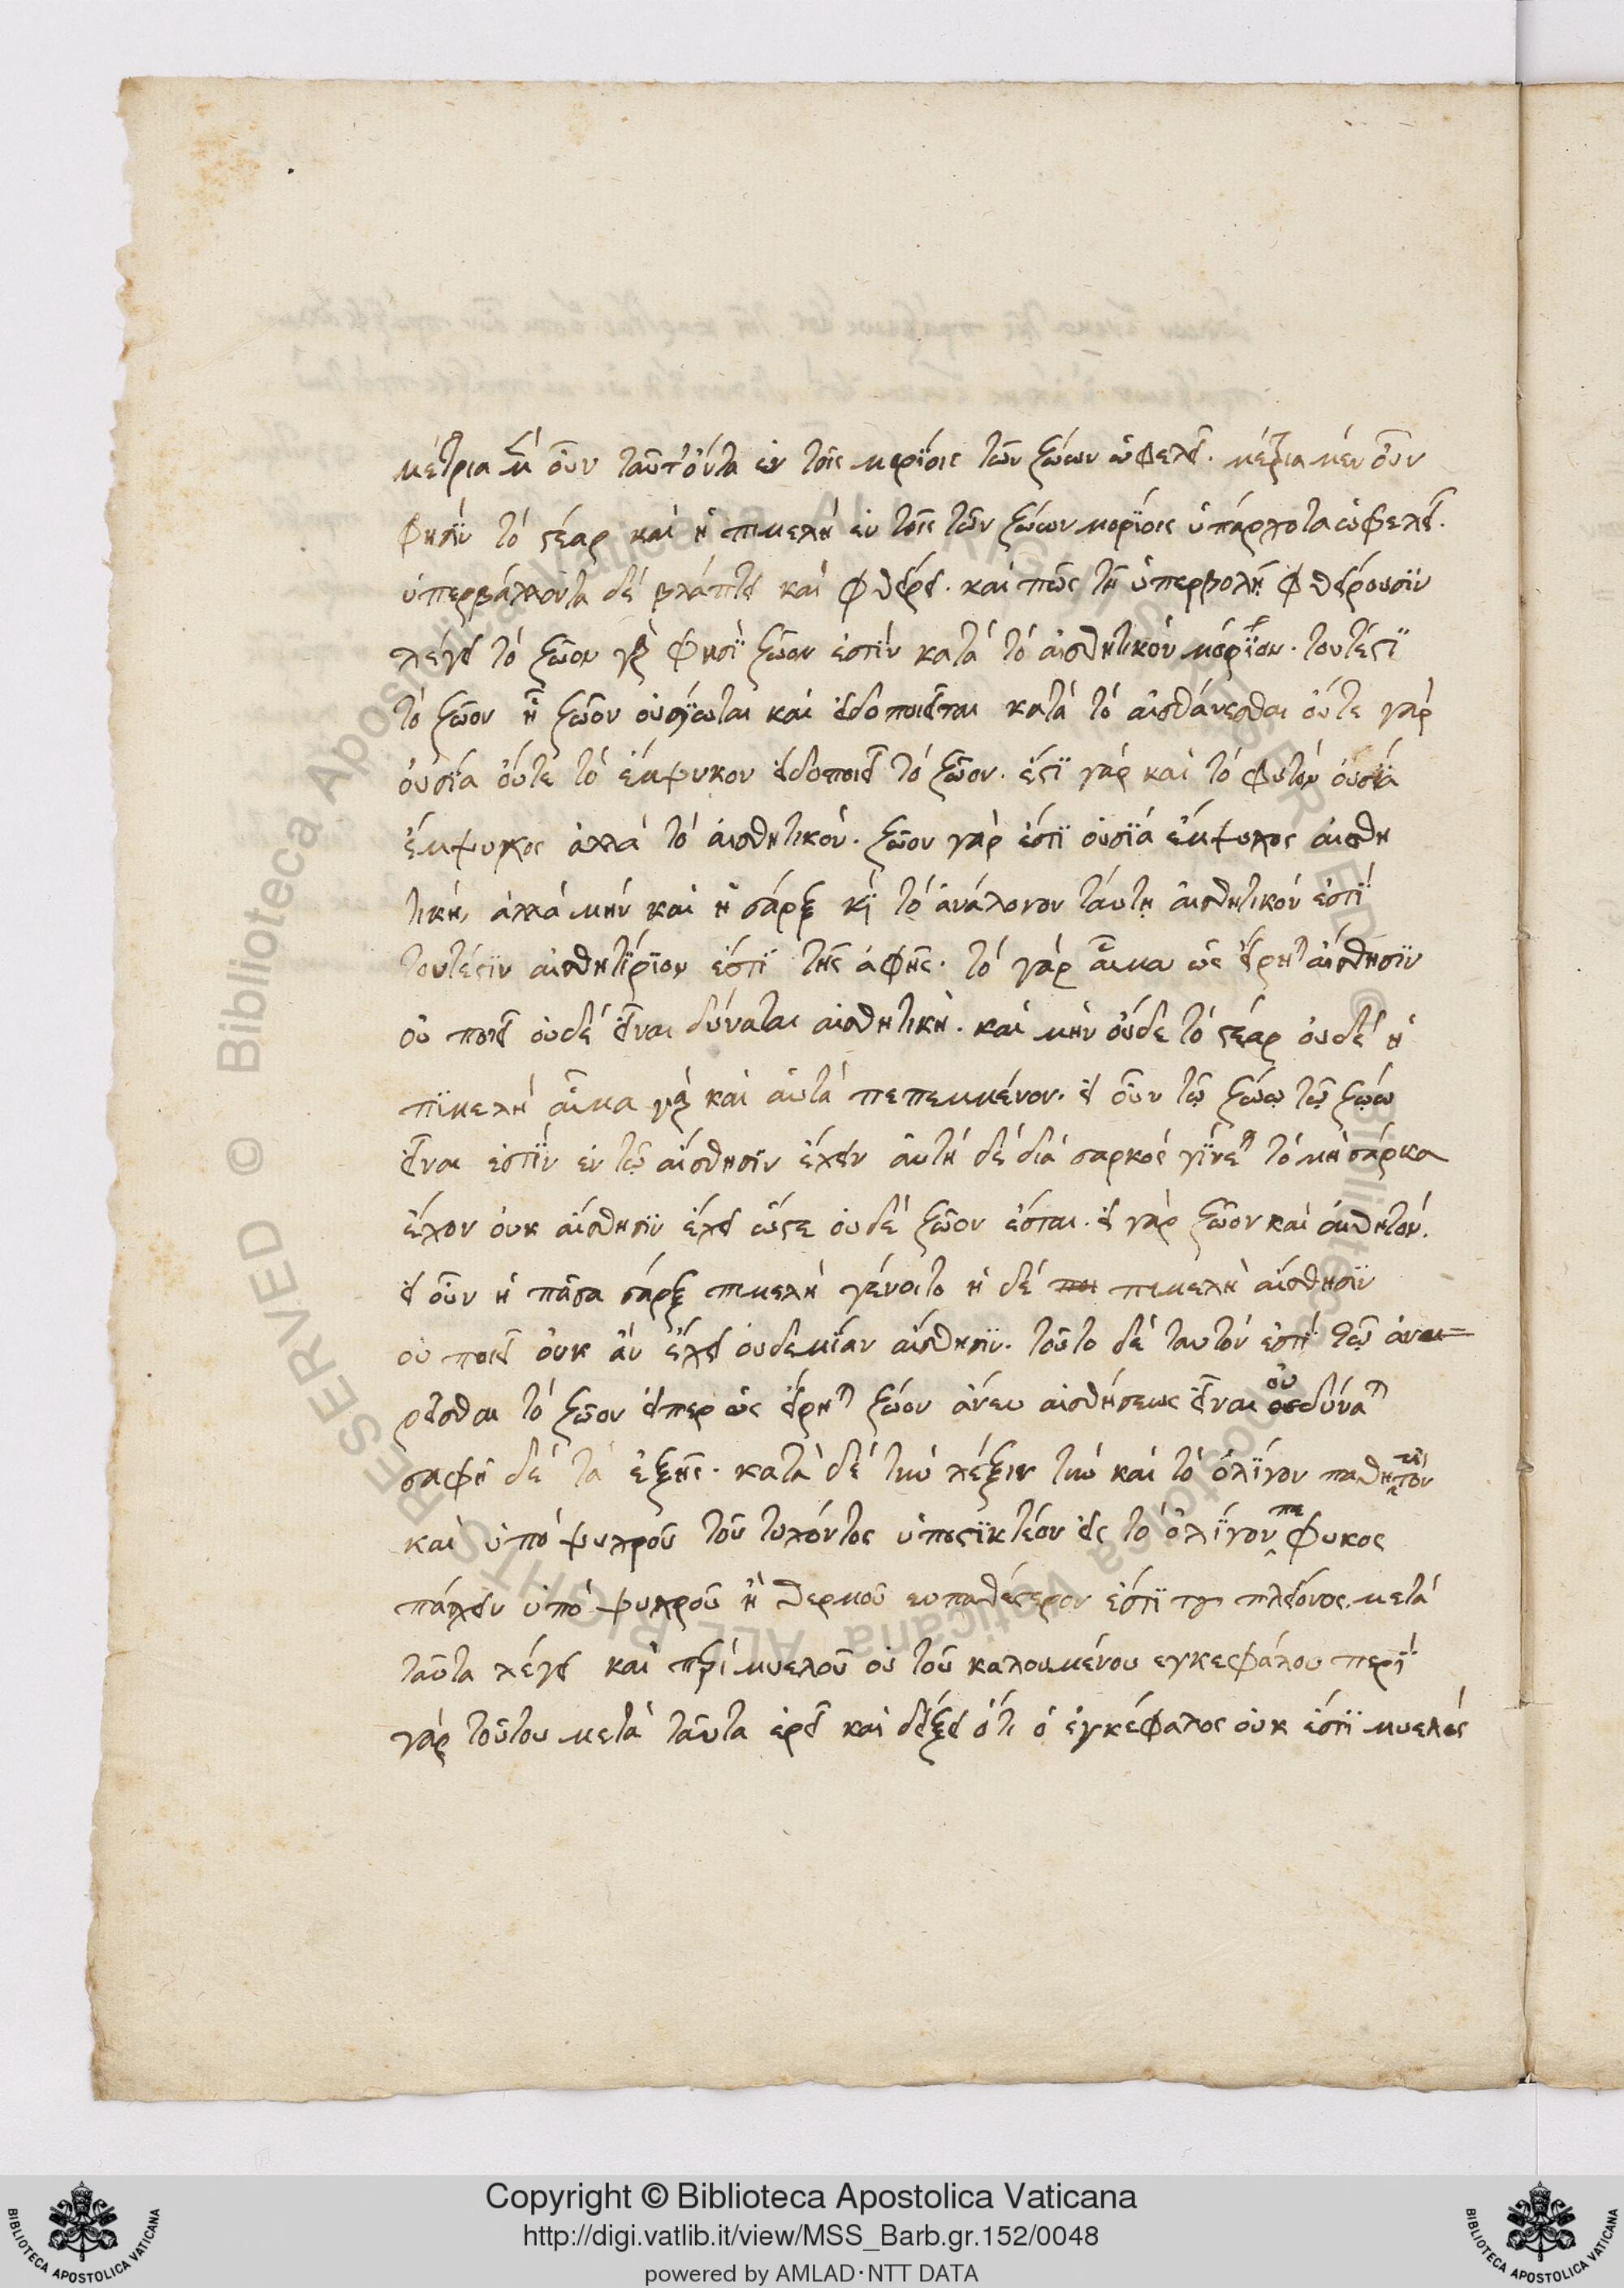 μέτρια μὲν οὖν ταῦτ' ὄντα ἐν τοῖς μορίοις τῶν ζώων ὠφελεῖ. μέτρια μὲν οὖν
φησὶν τό στέαρ καὶ ἡ πιμελὴ ἐν τοῖς τῶν ζώων μορίοις ὑπάρχοτα ὠφελεῖ.
ὑπερβάλλοντα δέ βλάπτει καὶ φθείρει. καὶ πῶς τῇ ὑπερβολῇ φθείρουσϊν
λέγει τό ζῶον γὰρ φησὶ ζῶον ἐστίν κατά τό αἰσθητικόν μόριον. τουτέστϊ
τό ζῶον ᾗ ζῶον οὐσίωται καὶ εἰδοποιεῖται κατά τό αἰσθάνεσθαι οὔτε γάρ
οὐσία οὔτε τό ἔμψυχον εἰδοποιεῖ τό ζῶον. ἔστϊ γάρ καὶ τό φυτόν οὐσία
ἔμψυχος ἀλλά τό αἰσθητικόν. ζῶον γάρ ἐστϊ οὐσία ἔμψυχος αἰσθη
τική, ἀλλά μήν καὶ ἡ σάρξ κὶ τό ἀνάλογον ταύτῃ αἰσθητικόν ἐστί
τουτέστϊν αἰσθητίριον ἐστϊ τῆς ἁφῆς. τό γάρ αἷμα ὡς εἴρητ αἴσθησιν
οὐ ποιεῖ οὐδέ εἶναι δύναται αἰσθητική. καὶ μὴν οὐδε τό στέαρ οὐδέ ἡ
πϊμελή αἷμα γὰρ καὶ αὐτά πεπεμμένον. εἰ οὖν τῷ ζώῳ τῷ ζώῳ
εἶναι ἐστίν ἐν τῷ αἴσθησϊν ἔχειν αὐτή δέ διά σαρκός γίνεται τό μὴ σάρκα
ἔχον οὐκ αἴσθησϊν ἔχει ὥστε οὐδέ ζῶον ἔσται. εἰ γάρ ζῶον καὶ αἰσθητόν.
εἰ οὖν ἡ πᾶσα σάρξ πιμελὴ γένοιτο ἡ δέ πι πιμελὴ αἴσθησιν
οὐ ποιεῖ οὐκ ἄν ἔχει οὐδεμίαν αἴσθησιν. τοῦτο δέ ταυτόν ἐστί τῷ ἀναι=
ρεῖσθαι τό ζῶον εἴπερ ὡς εἴρηται ζῶον ἄνευ αἰσθήσεως εἶναι οὐ δύναται
σαφῆ δέ τά ἑξῆς. κατὰ δέ τὴν λέξιν τὴν καὶ τό ὀλίγον παθητικόν
καὶ ὑπό ψυχροῦ τοῦ τυχόντος ὑποστϊκτέον εἰς τό ὀλίγον πεφυκος
πάχειν ὑπό ψυχροῦ ἢ θερμοῦ ευπαθέστερον ἐστϊ του πλείονος. μετά
ταῦτα λέγει καὶ περί μυελοῦ οὐ τοῦ καλουμένου εγκεφάλου περί
γάρ τούτου μετά ταῦτα ἐρεῖ καὶ δείξει ὅτι ὁ ἐγκέφαλος οὐκ ἐστϊ μυελός
Copyright © Biblioteca Apostolica Vaticana
http://digi.vatlib.it/view/MSS_Barb.gr.152/0048
powered by AMLAD·NTT DATA